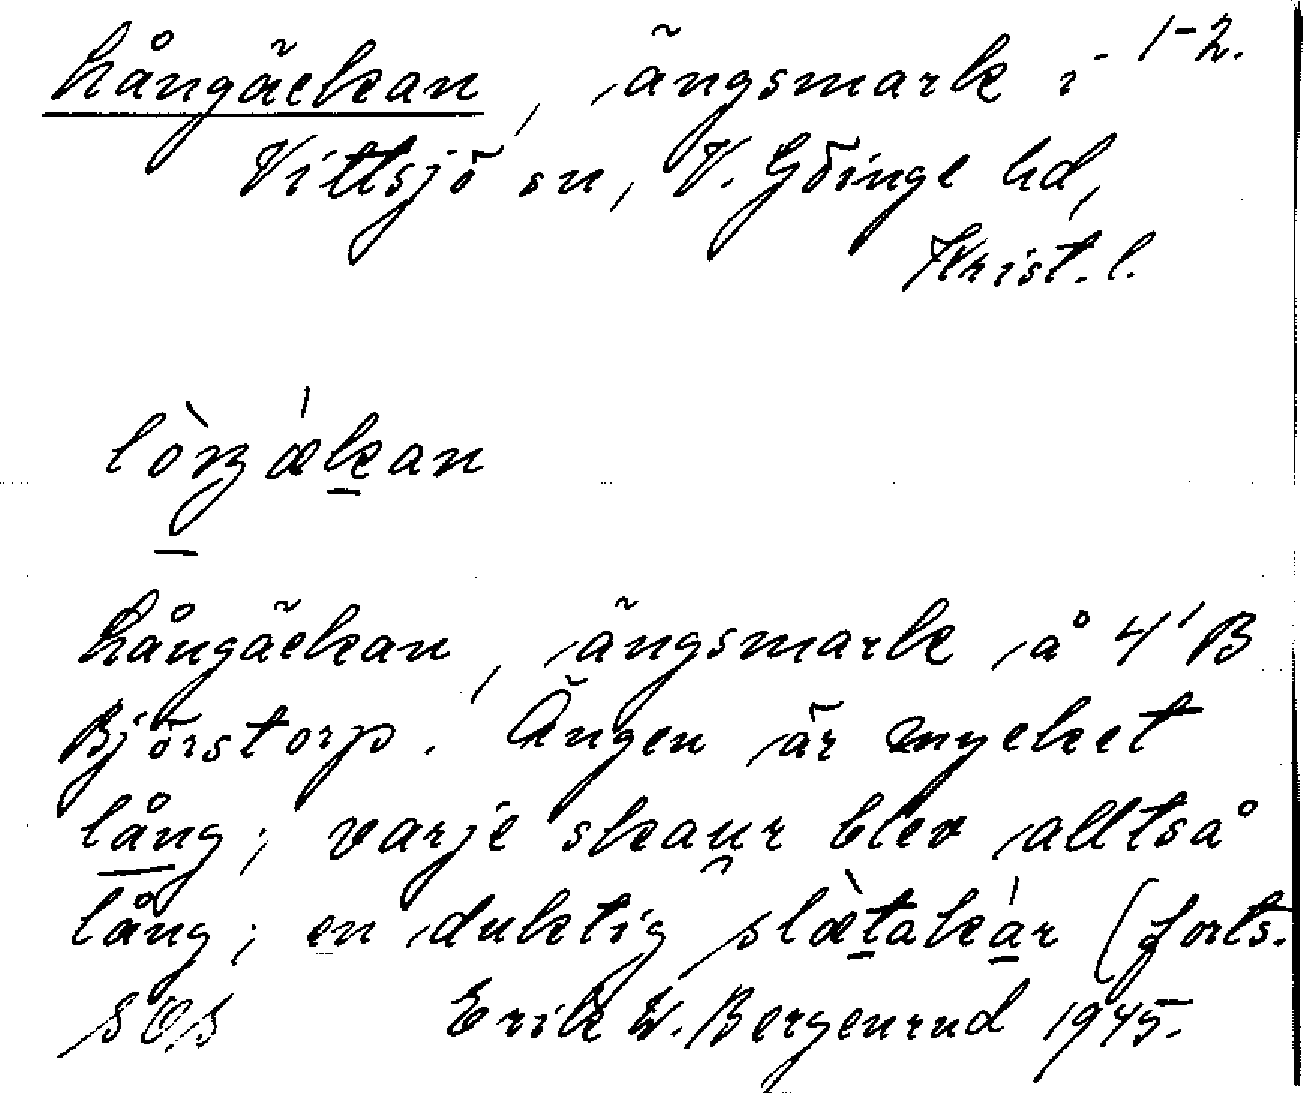 Långäckan, ängsmark i 1-2.
Vittsjö sn, V. Göinge hd,
Krist. l.
lòŋǽkan
Långäckan, ängsmark å 4¹ B
Björstorp. Ängen är mycket
lång; varje skau̯r blev alltså
lång; en duktig slæ̀takár (forts.
SOS Erik W. Bergenrud 1945.